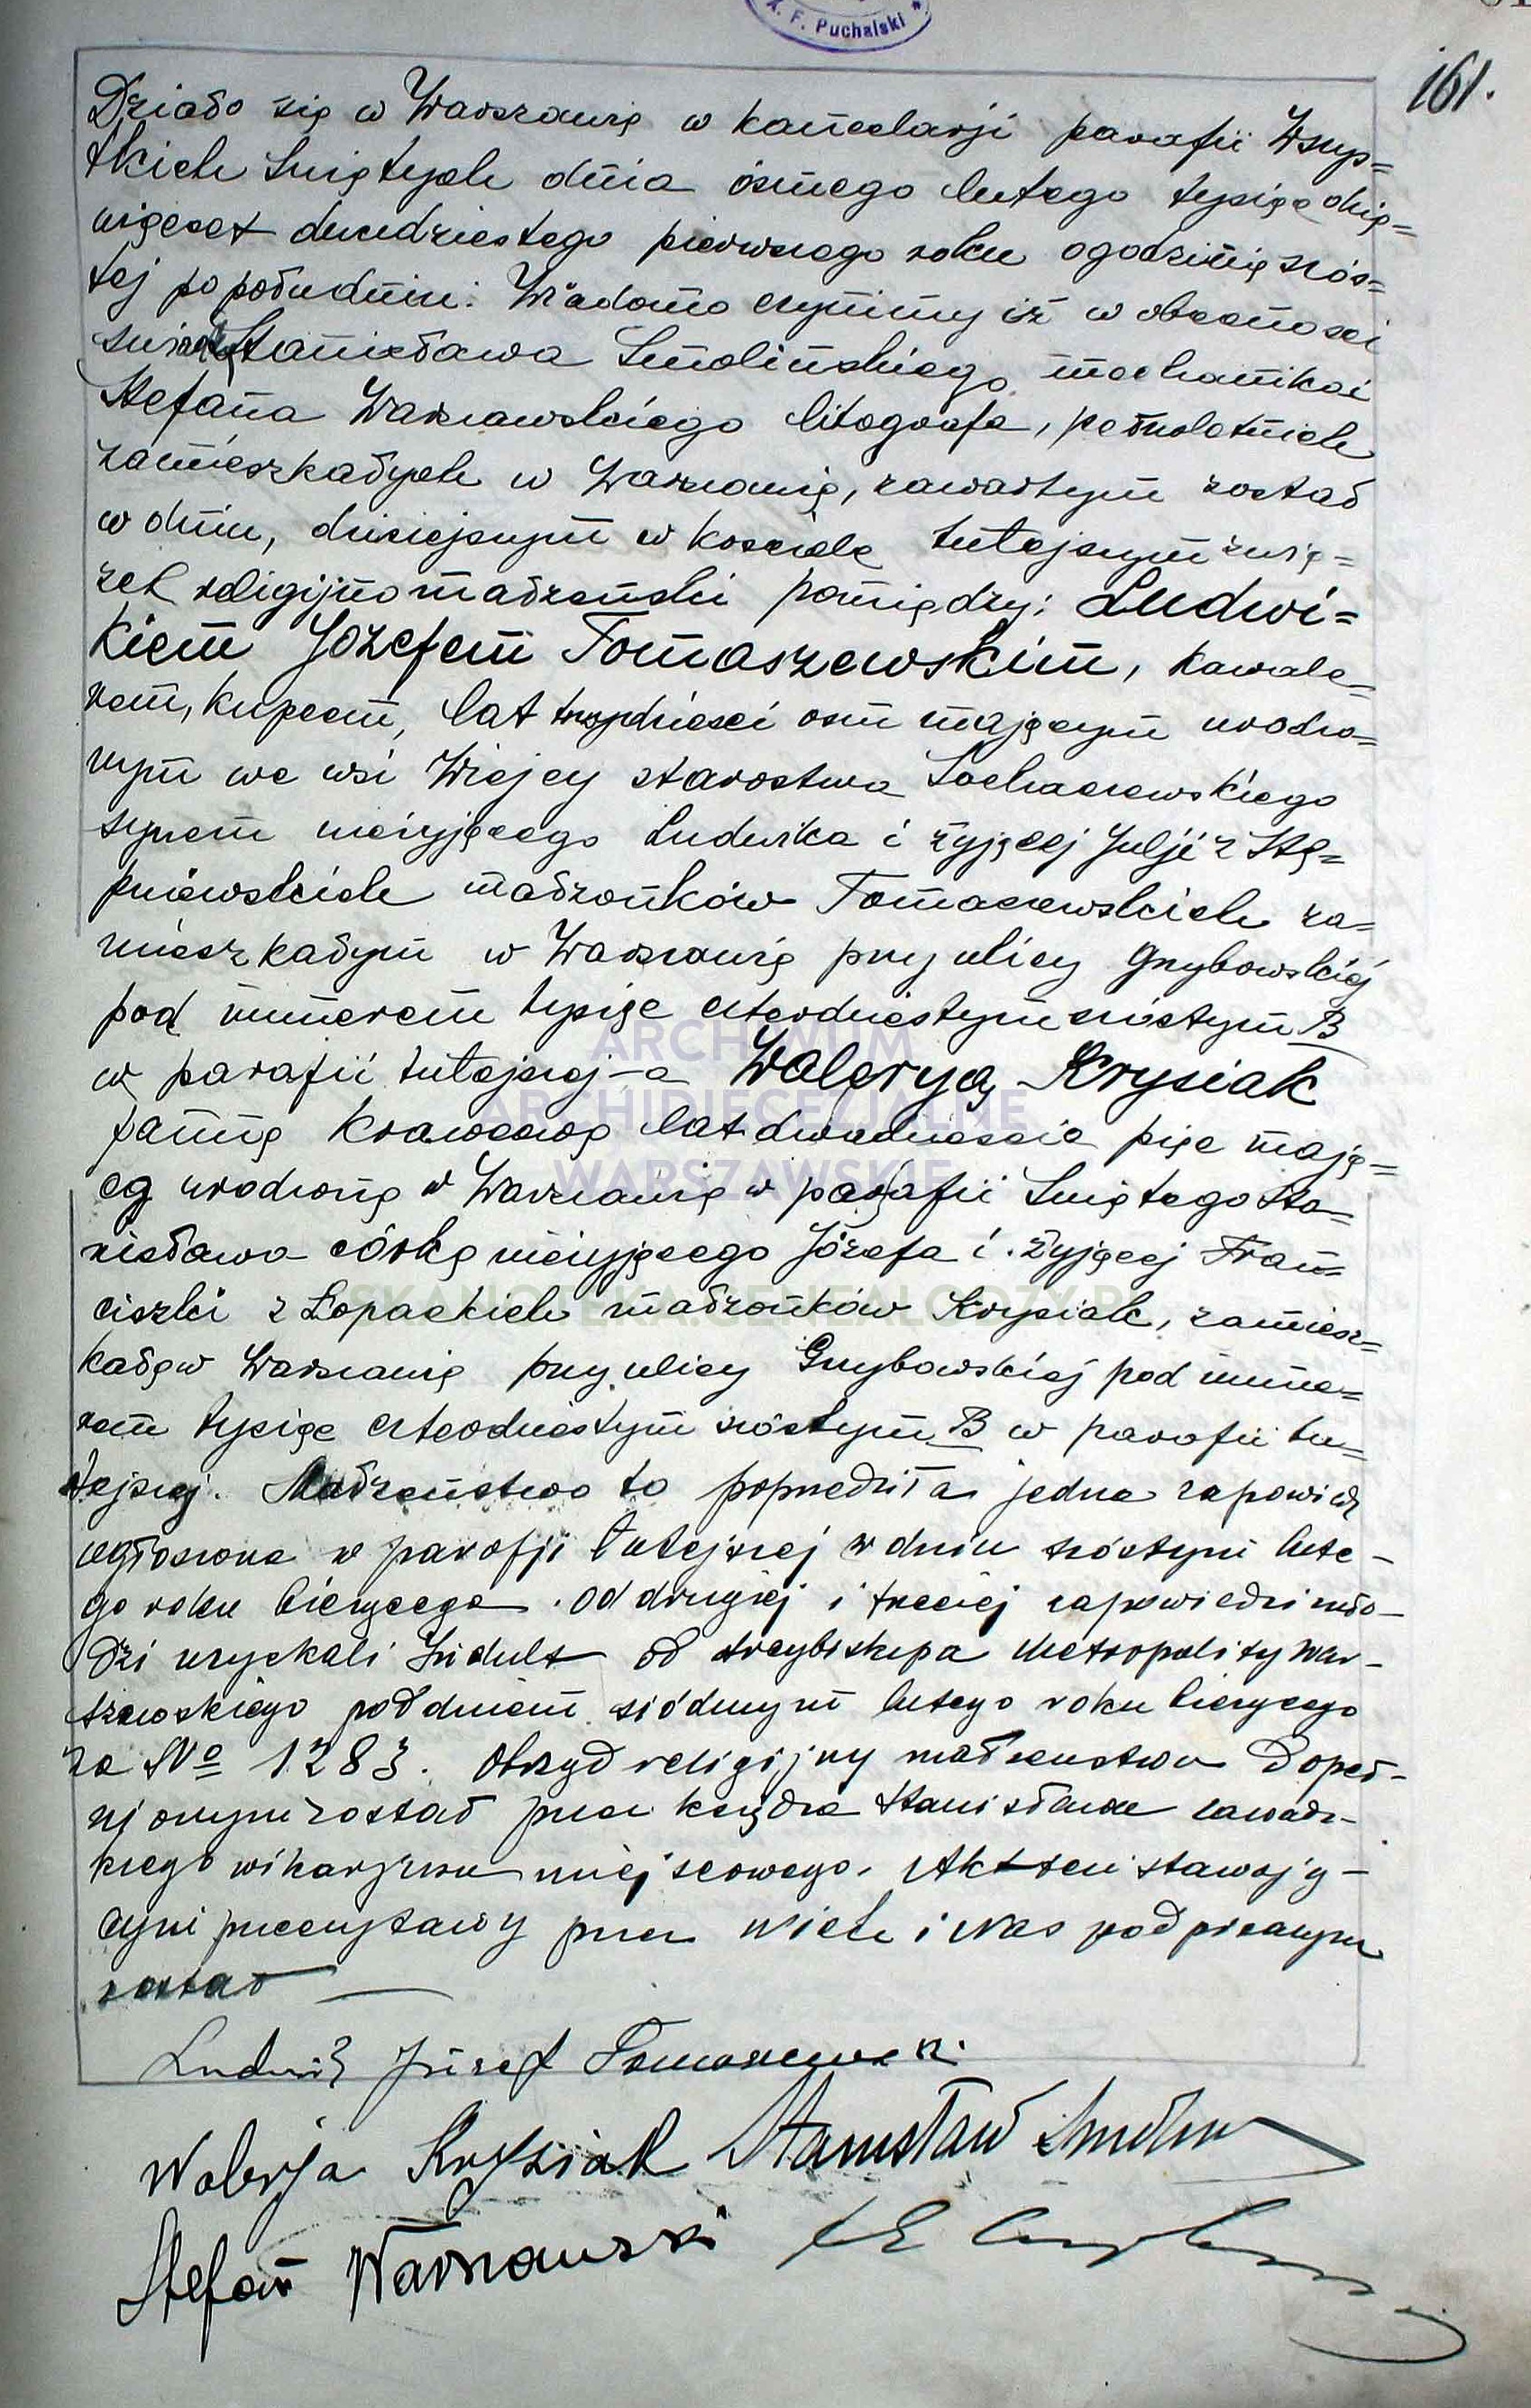 K. F. Puchalski
161.
Działo się w Warszawie w kancelarji parafii Wszys=
tkich Świętych dnia ósmego lutego tysiąc dzie=
więcset dwudziestego pierwszego roku o godzinie szós=
tej po południu. Wiadomo czynimy iż w obecności
świadków Stanisława Smolińskiego mechanika i
Stefana Warszawskiego litografa, pełnoletnich
zamieszkałych w Warszawie, zawartym został
w dniu, dzisiejszym w kościele tutejszym zwią=
zek religijno małżeński pomiędzy: Ludwi=
kiem Józefem Tomaszewskim, kawale=
rem, kupcem, lat trzydzieści osm mającym urodzo=
nym we wsi Wiejcy starostwa Sochaczewskiego
synem nieżyjącego Ludwika i żyjącej Julji z Stę=
pniewskich małżonków Tomaszewskich za=
mieszkałym w Warszawie przy ulicy Grzybowskiej
pod numerem tysiąc czterdziestym szóstym B
w parafii tutejszej - a Waleryą Krysiak
panną krawcową lat dwadzieścia pięć mają=
cą urodzoną w Warszawie w parafii Świętego Sta=
nisława córką nieżyjącego Józefa i żyjącej Fran=
ciszki z Łopackich małżonków Krysiak, zamiesz=
kałą w Warszawie przy ulicy Grzybowskiej pod nume=
rem tysiąc czterdziestym szóstym B w parafii tu=
tejszej. Małżeństwo to poprzedziła jedna zapowiedź
ogłoszona w parafji tutejszej w dniu szóstym lute-
go roku bieżącego. Od drugiej i trzeciej zapowiedzi mło-
dzi uzyskali Indult od Arcybiskupa Metropolity War-
szawskiego pod dniem siódmym lutego roku bieżącego
za No 1283. Obrzęd religijny małżeństwa dopeł-
niony został przez księdza Stanisława Zawadz-
kiego wikarjusza miejscowego. Akt ten stawają-
cym przeczytany przez nich i Nas podpisanym
został
Ludwik Józef Tomaszewski
Walerja Krysiak Stanisław
Stefan Warszawski
ARCHIWUM
ARCHIDIECEZJALNE
WARSZAWSKIE
SKANOTEKA.GENEALODZY.PL